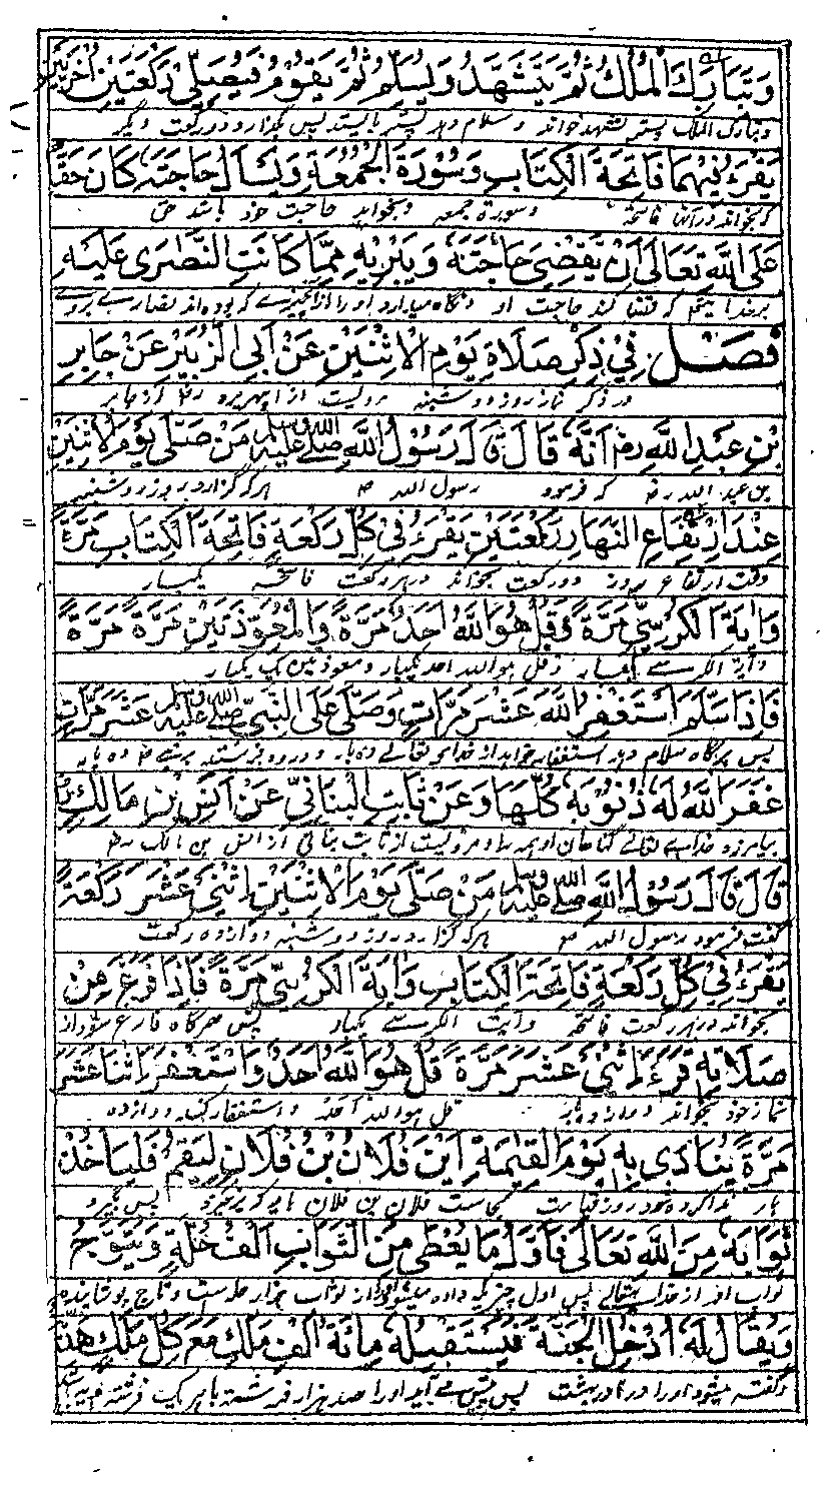 وَتَبَارَكَ الْمُلْكُ ثُمَّ يَتَشَهَّدُ وَيُسَلِّمُ ثُمَّ يَقُوْمُ فَيُصَلِّىْ رَكْعَتَيْنِ اُخْرَيَيْنِ
وتبارک الملک پستر تشهد خواند و سلام دهد پستر بایستد پس بگذارد دو رکعت دیگر
يَقْرَءُ فِيْهِمَا فَاتِحَةَ الْكِتَابِ وَسُوْرَةَ الْجُمُعَةِ وَيَسْأَلُ حَاجَتَهٗ كَانَ حَقًّا
که بخواند در آنها فاتحه و سورة جمعه و بخواهد حاجت خود باشد حق
عَلَى اللّٰهِ تَعَالٰى اَنْ يَّقْضِىَ حَاجَتَهٗ وَيُبْرِيَهٖ مِمَّا كَانَتِ النَّصٰرٰى عَلَيْهِ
که قضا کند حاجت او و نگاه میدارد او را از چیزے که بوده اند نصارے بروے
فَصْلٌ فِىْ ذِكْرِ صَلَاةِ يَوْمِ الْاِثْنَيْنِ عَنْ اَبِى الزُّبَيْرِ عَنْ جَابِرِ
در ذکر نماز روز دوشنبه مرویست از
بْنِ عَبْدِ اللّٰهِ رض اَنَّهٗ قَالَ قَالَ رَسُوْلُ اللّٰهِ صَلَّى اللّٰهُ عَلَيْهِ وَسَلَّمَ مَنْ صَلّٰى يَوْمَ الْاِثْنَيْنِ
بن عبد الله رض که فرمود رسول الله ص هر که گزارد بروز دوشنبه
عِنْدَ اِرْتِفَاعِ النَّهَارِ رَكْعَتَيْنِ يَقْرَءُ فِىْ كُلِّ رَكْعَةٍ فَاتِحَةَ الْكِتَابِ مَرَّةً
وقت ارتفاع روز دو رکعت بخواند در هر رکعت فاتحه یکبار
وَاٰيَةَ الْكُرْسِىِّ مَرَّةً وَقُلْ هُوَ اللّٰهُ اَحَدٌ مَرَّةً وَالْمُعَوَّذَتَيْنِ مَرَّةً مَرَّةً
و آیة الکرسے یکبار و قل هو الله احد یکبار و معوذتین یک یکبار
فَاِذَا سَلَّمَ اسْتَغْفَرَ اللّٰهَ عَشْرَ مَرَّاتٍ وَصَلّٰى عَلَى النَّبِىِّ صَلَّى اللّٰهُ عَلَيْهِ وَسَلَّمَ عَشْرَ مَرَّاتٍ
پس هرگاه سلام دهد استغفار خواهد از خداے تعالے ده بار و درود فرستد بر نبے ص ده بار
غَفَرَ اللّٰهُ لَهٗ ذُنُوْبَهٗ كُلَّهَا وَعَنْ ثَابِتِ الْبُنَانِىِّ عَنْ اَنَسِ بْنِ مَالِكٍ رض
بیامرزد خداے تعالے گناهان او همه را و مرویست از ثابت بنانی از انس بن مالک رض
قَالَ قَالَ رَسُوْلُ اللّٰهِ صَلَّى اللّٰهُ عَلَيْهِ وَسَلَّمَ مَنْ صَلّٰى يَوْمَ الْاِثْنَيْنِ اثْنَىْ عَشَرَ رَكْعَةً
گفت فرمود رسول الله ص هر که گزارد روز دوشنبه دوازده رکعت
يَقْرَءُ فِىْ كُلِّ رَكْعَةٍ فَاتِحَةَ الْكِتَابِ وَاٰيَةَ الْكُرْسِىِّ مَرَّةً فَاِذَا فَرَغَ مِنْ
بخواند در هر رکعت فاتحه و آیت الکرسے یکبار پس هرگاه فارغ شود از
صَلَاتِهٖ قَرَءَ اثْنَىْ عَشَرَ مَرَّةً قُلْ هُوَ اللّٰهُ اَحَدٌ وَاسْتَغْفَرَ اثْنَا عَشَرَ
نماز خود بخواند دوازده بار قل هو الله احد و استغفار کند دوازده
مَرَّةً يُنَادٰى بِهٖ يَوْمَ الْقِيٰمَةِ اَيْنَ فُلَانُ بْنُ فُلَانٍ لِيَقُمْ فَلْيَأْخُذْ
بار ندا کرده شود روز قیامت کجاست فلان بن فلان باید که برخیزد پس بگیرد
ثَوَابَهٗ مِنَ اللّٰهِ تَعَالٰى فَاَوَّلُ مَا يُعْطٰى مِنَ الثَّوَابِ اَلْفُ حُلَّةٍ وَيُتَوَّجُ
ثواب او از خداے تعالے پس اول چیزیکه داده میشود از ثواب هزار حله ست و تاج پوشانیده
وَيُقَالُ لَهٗ اُدْخُلِ الْجَنَّةَ فَيَسْتَقْبِلُهٗ مِائَةُ اَلْفِ مَلَكٍ مَعَ كُلِّ مَلَكٍ هَدِيَّةٌ
و گفته میشود او را در آ در بهشت پس پیش مے آید او را صد هزار فرشته با هر یک فرشته